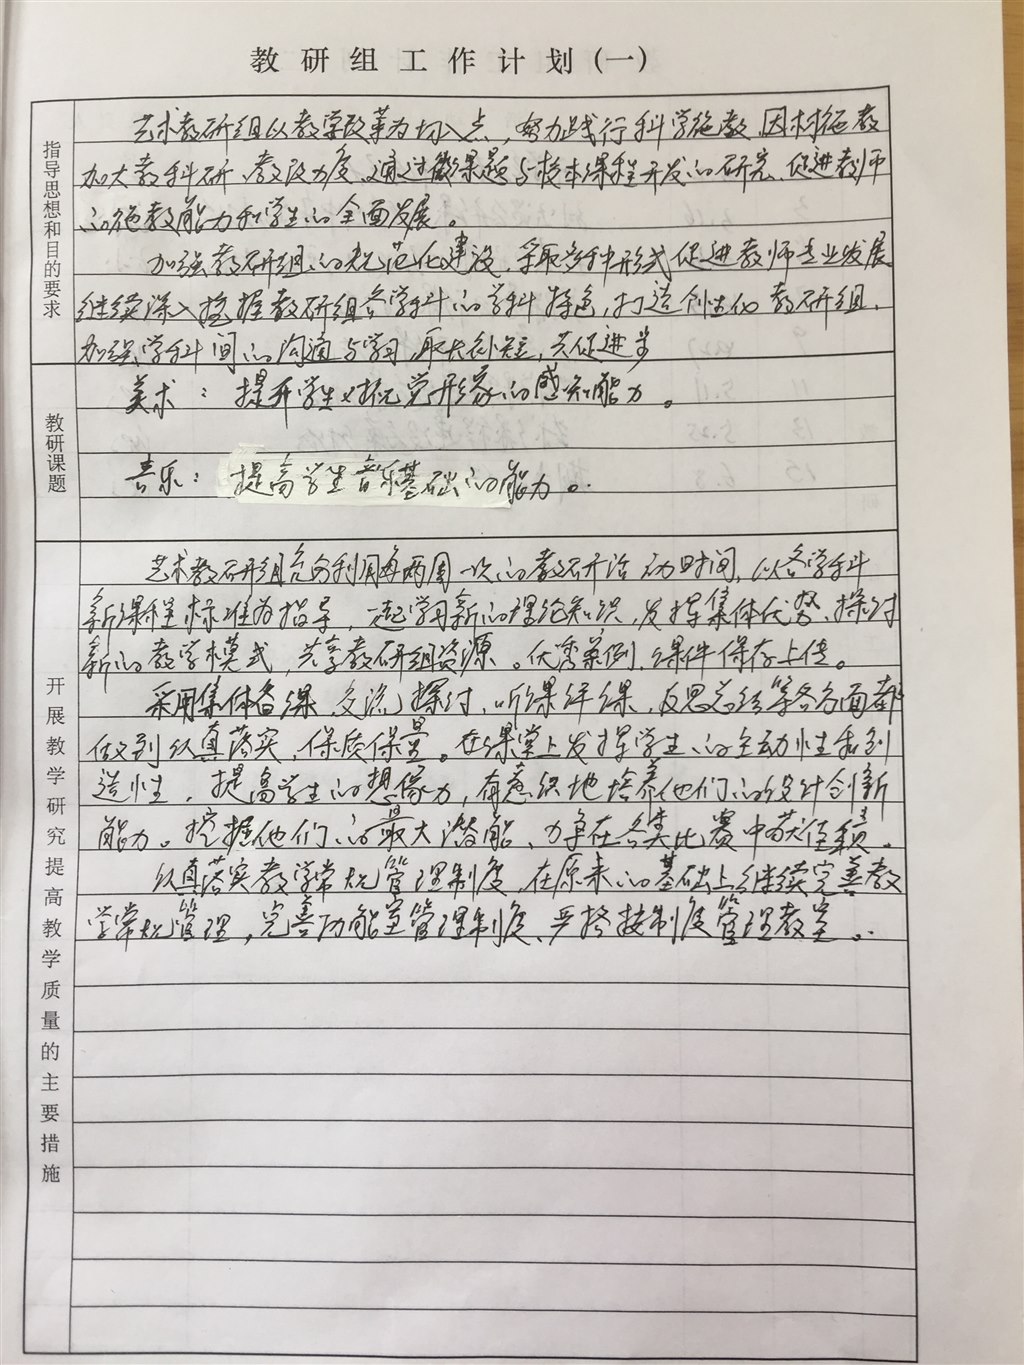 教研组工作计划(一)
指导思想和目的要求
艺术教研组以教学改革为切入点，努力践行科学施教、因材施教
加大教科研、教改力度，通过微课题与校本课程开发的研究，促进教师
的施教能力和学生的全面发展。
加强教研组的规范化建设，采取多种形式促进教师专业发展
继续深入挖掘教研组各学科的学科特色，打造创造性教研组，
加强学科间的沟通与学习，取长补短，共促进步
教研课题
美术：提升学生对视觉形象的感知能力。
音乐：提高学生音乐基础的能力。
开展教学研究提高教学质量的主要措施
艺术教研组充分利用每两周一次的教研活动时间，以各学科
新课程标准为指导，一起学习新的理论知识，发挥集体优势，探讨
新的教学模式，共享教研组资源。优秀案例、课件保存上传。
采用集体备课，交流探讨，听课评课，反思总结等各方面都
做到认真落实，保质保量。在课堂上发挥学生的主动性和创
造性，提高学生的想像力，有意识地培养他们的设计创新
能力。挖掘他们的最大潜能，力争在各类比赛中获佳绩。
认真落实教学常规管理制度，在原来的基础上继续完善教
学常规管理，完善功能室管理制度，严格按制度管理教室。